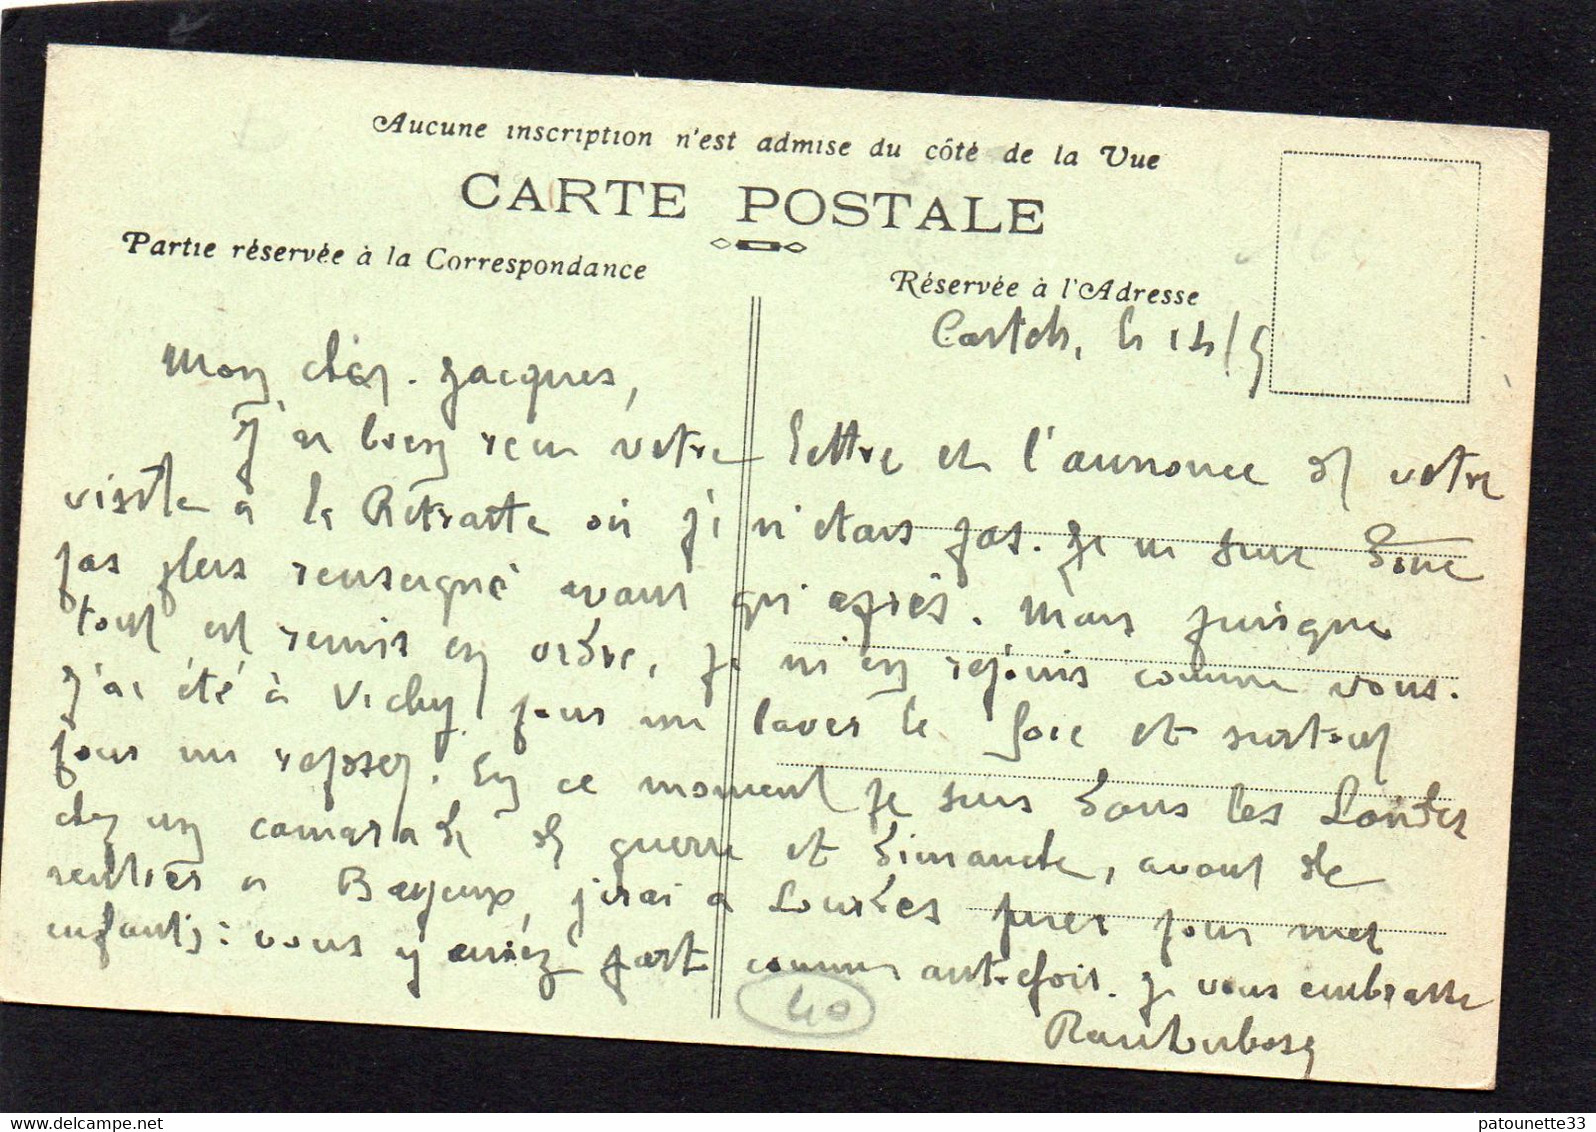 Aucune inscription n'est admise du côté de la Vue
CARTE POSTALE
Partie réservée à la Correspondance
Réservée à l'Adresse
le 14/9
Mon cher Jacques,
J'ai bien reçu votre lettre et l'annonce de votre
visite à la Retraite où je n'étais pas. Je ne suis donc
pas plus renseigné avant qu'après. Mais puisque
tout est remis en ordre, je m'en réjouis comme vous.
J'ai été à Vichy pour me laver le foie et surtout
pour me reposer. En ce moment je suis dans les Landes
chez un camarade de guerre et dimanche, avant de
rentrer à Bayeux, j'irai à Lourdes prier pour mes
enfants : vous y aurez part comme autrefois. Je vous embrasse
40
patounette33